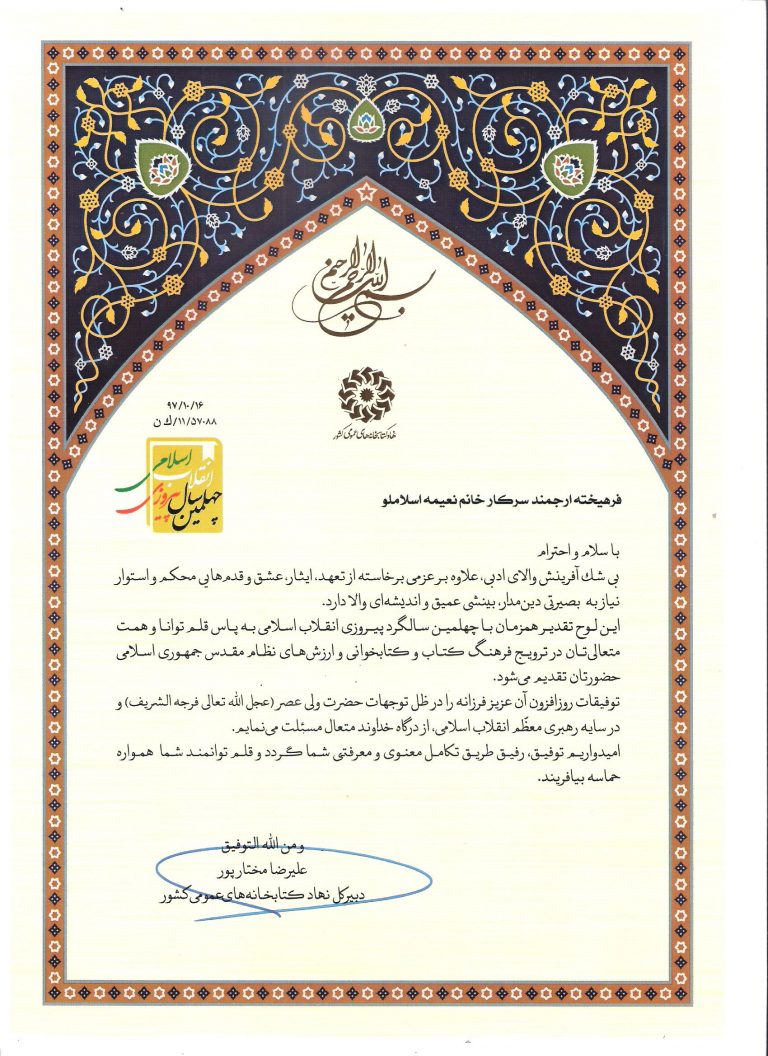 بسم الله الرحمن الرحیم
نهاد کتابخانه‌های عمومی کشور
۹۷/۱۰/۱۶
۱۱/۵۷۰۸۸/ك ن
چهلمین سال پیروزی انقلاب اسلامی
فرهیخته ارجمند سرکار خانم نعیمه اسلاملو
با سلام و احترام
بی شك آفرینش والای ادبی، علاوه بر عزمی برخاسته از تعهد، ایثار، عشق و قدم‌هایی محکم و استوار
نیاز به بصیرتی دین‌مدار، بینشی عمیق و اندیشه‌ای والا دارد.
این لوح تقدیر همزمان با چهلمین سالگرد پیروزی انقلاب اسلامی به پاس قلم توانا و همت
متعالی‌تان در ترویج فرهنگ کتاب و کتابخوانی و ارزش‌های نظام مقدس جمهوری اسلامی
حضورتان تقدیم می‌شود.
توفیقات روزافزون آن عزیز فرزانه را در ظل توجهات حضرت ولی عصر (عجل الله تعالی فرجه الشریف) و
در سایه رهبری معظّم انقلاب اسلامی، از درگاه خداوند متعال مسئلت می‌نمایم.
امیدواریم توفیق، رفیق طریق تکامل معنوی و معرفتی شما گردد و قلم توانمند شما همواره
حماسه بیافریند.
و من الله التوفیق
علیرضا مختارپور
دبیرکل نهاد کتابخانه‌های عمومی کشور